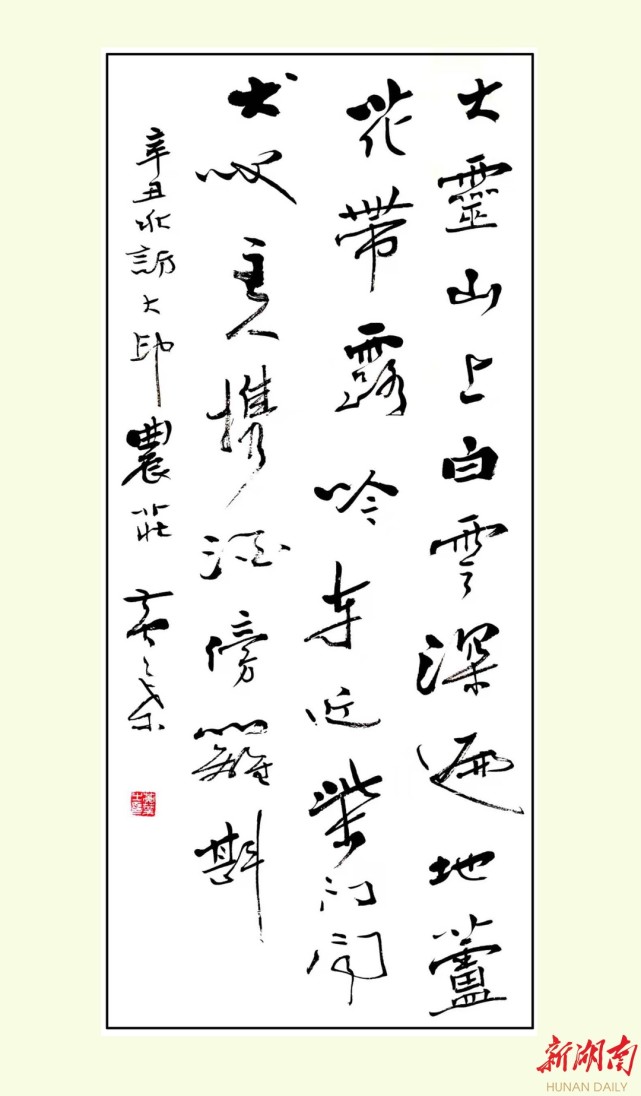 大靈山上白雲深遍地蘆
花帶露吟車近柴門聞
犬吠主人攜酒傍籬斟
辛丑秋訪大師農莊
新湖南
HUNAN DAILY